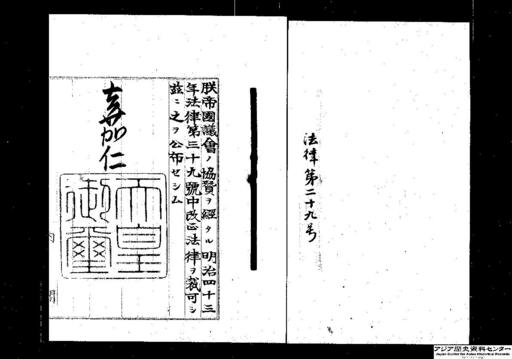 法律第二十九号
朕帝國議會ノ協賛ヲ經タル明治四十三
年法律第三十九號中改正法律ヲ裁可シ
茲ニ之ヲ公布セシム
嘉仁
天皇
御璽
内閣
アジア歴史資料センター
Japan Center for Asian Historical Records